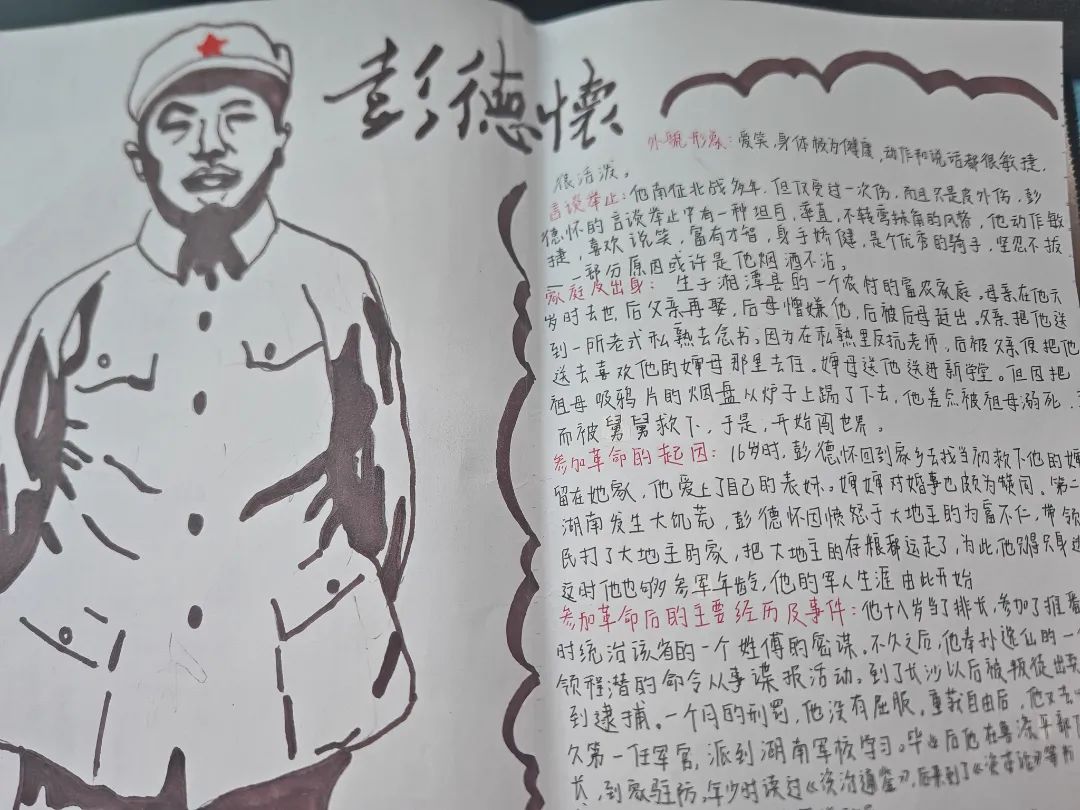 彭德懷
外貌形象：爱笑，身体极为健康，动作和说话都很敏捷，
很活泼。
言谈举止：他南征北战多年，但仅受过一次伤，而且只是皮外伤，彭
德怀的言谈举止中有一种坦白，率直，不转弯抹角的风格，他动作敏
捷，喜欢说笑，富有才智，身手娇健，是个优秀的骑手，坚忍不拔
一部分原因或许是他烟酒不沾。
家庭及出身：生于湘潭县的一个农村的富农家庭。母亲在他六
岁时去世后父亲再娶，后母憎嫌他，后被后母赶出。父亲把他送
到一所老式私熟去念书。因为在私熟里反抗老师，后被父亲便把他
送去喜欢他的婶母那里去住。婶母送他送进新学堂。但因把
祖母吸鸦片的烟盘从炉子上踢了下去，他差点被祖母溺死，
而被舅舅救下，于是，开始闯世界。
参加革命的起因：16岁时，彭德怀回到家乡去找当初救下他的
留在她家，他爱上了自己的表妹。婶婶对婚事也颇为赞同。第二
湖南发生大饥荒，彭德怀因愤怒于大地主的为富不仁，带领
民打了大地主的家，把大地主的存粮都运走了，为此，他只得只身
这时他也够参军年龄，他的军人生涯由此开始
参加革命后的主要经历及事件：他十八岁当了排长，参加了推
时统治该省的一个姓傅的密谋。不久之后，他奉孙逸仙的一
领程潜的命令从事谍报活动，到了长沙以后被叛徒出卖
到逮捕。一个月的刑罚，他没有屈服，重获自由后，他又去
久第一任军官，派到湖南军校学习。毕业后他在鲁涤平部
长，到家驻防，年少时读过《资治通鉴》，后来到了《资本论》等